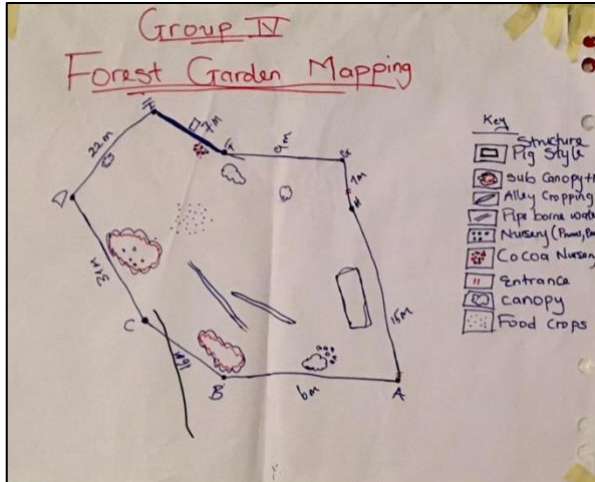 Group IV
Forest Garden Mapping
E
7m
22m
F
9m
G
1m
H
D
34m
C
16m
B
6m
A
15m
Key
Structure
Pig Style
Sub Canopy
Alley Cropping
Pipe borne
Nursery
Cocoa Nursery
Entrance
Canopy
Food Crops